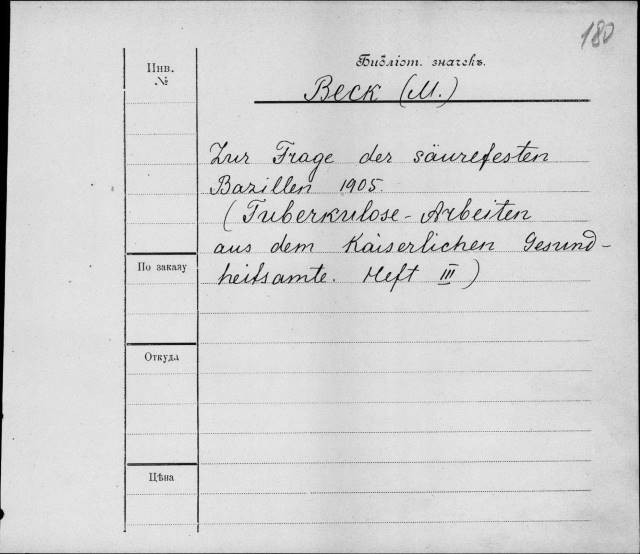 180
Инв.
№
Библіот. значекъ.
Beck (M.)
Zur Frage der säurefesten
Bazillen 1905.
(Tuberkulose-Arbeiten
aus dem Kaiserlichen Gesund-
heitsamte. Heft III)
По заказу
Откуда
Цѣна